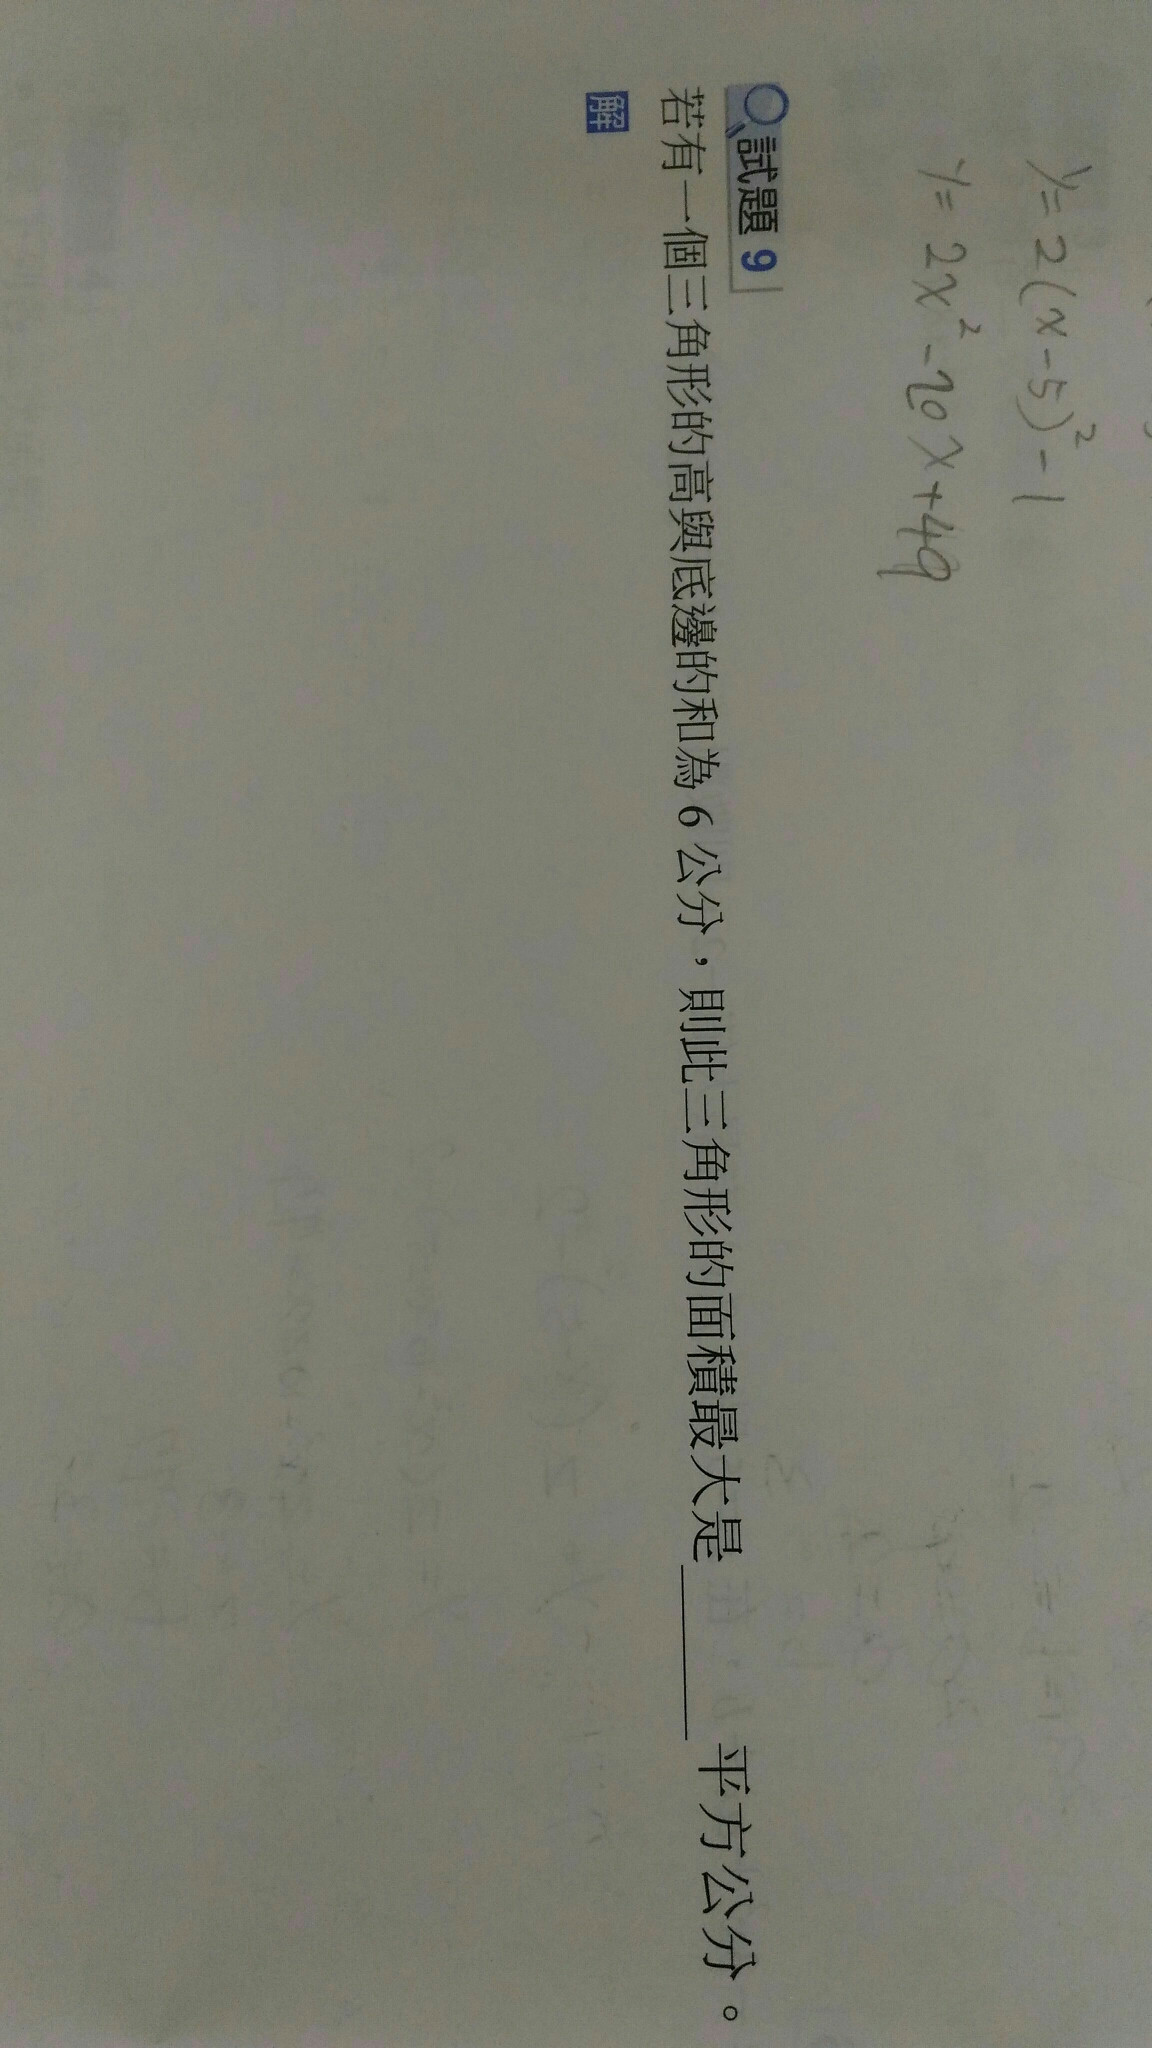 y=2(x-5)²-1
y=2x²-20x+49
試題 9
若有一個三角形的高與底邊的和為 6 公分，則此三角形的面積最大是______平方公分。
解